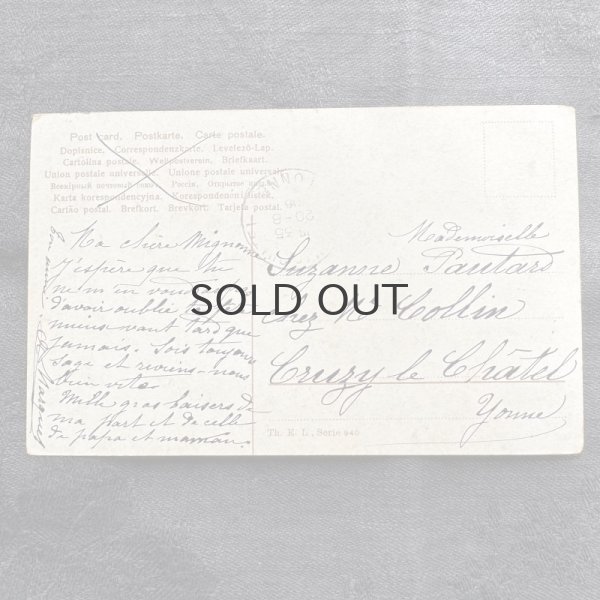 Post card. Postkarte. Carte postale.
Dopisnice. Correspondenzkarte. Levelező-Lap.
Cartolina postale. Weltpostverein. Briefkaart.
Union postale universelle. Unione postale universale.
Karta korespondencyjna. Korespondenční lístek.
Cartão postal. Brefkort. Brevkort. Tarjeta postal.
Ma chère Mignonne
J'espère que tu
ne m'en voudras pas
d'avoir oublié
mieux vaut tard que
jamais. Sois toujours
sage et reviens-nous
bien vite
Mille gros baisers de
ma part et de celle
de papa et maman.
Mademoiselle
Suzanne Pautard
Chez Mr Collin
Cruzy le Châtel
Yonne
Th. E. L., Serie 940
SOLD OUT